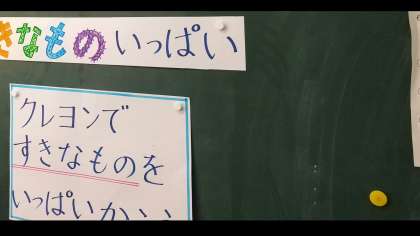 きなものいっぱい
クレヨンで
すきなものを
いっぱいか